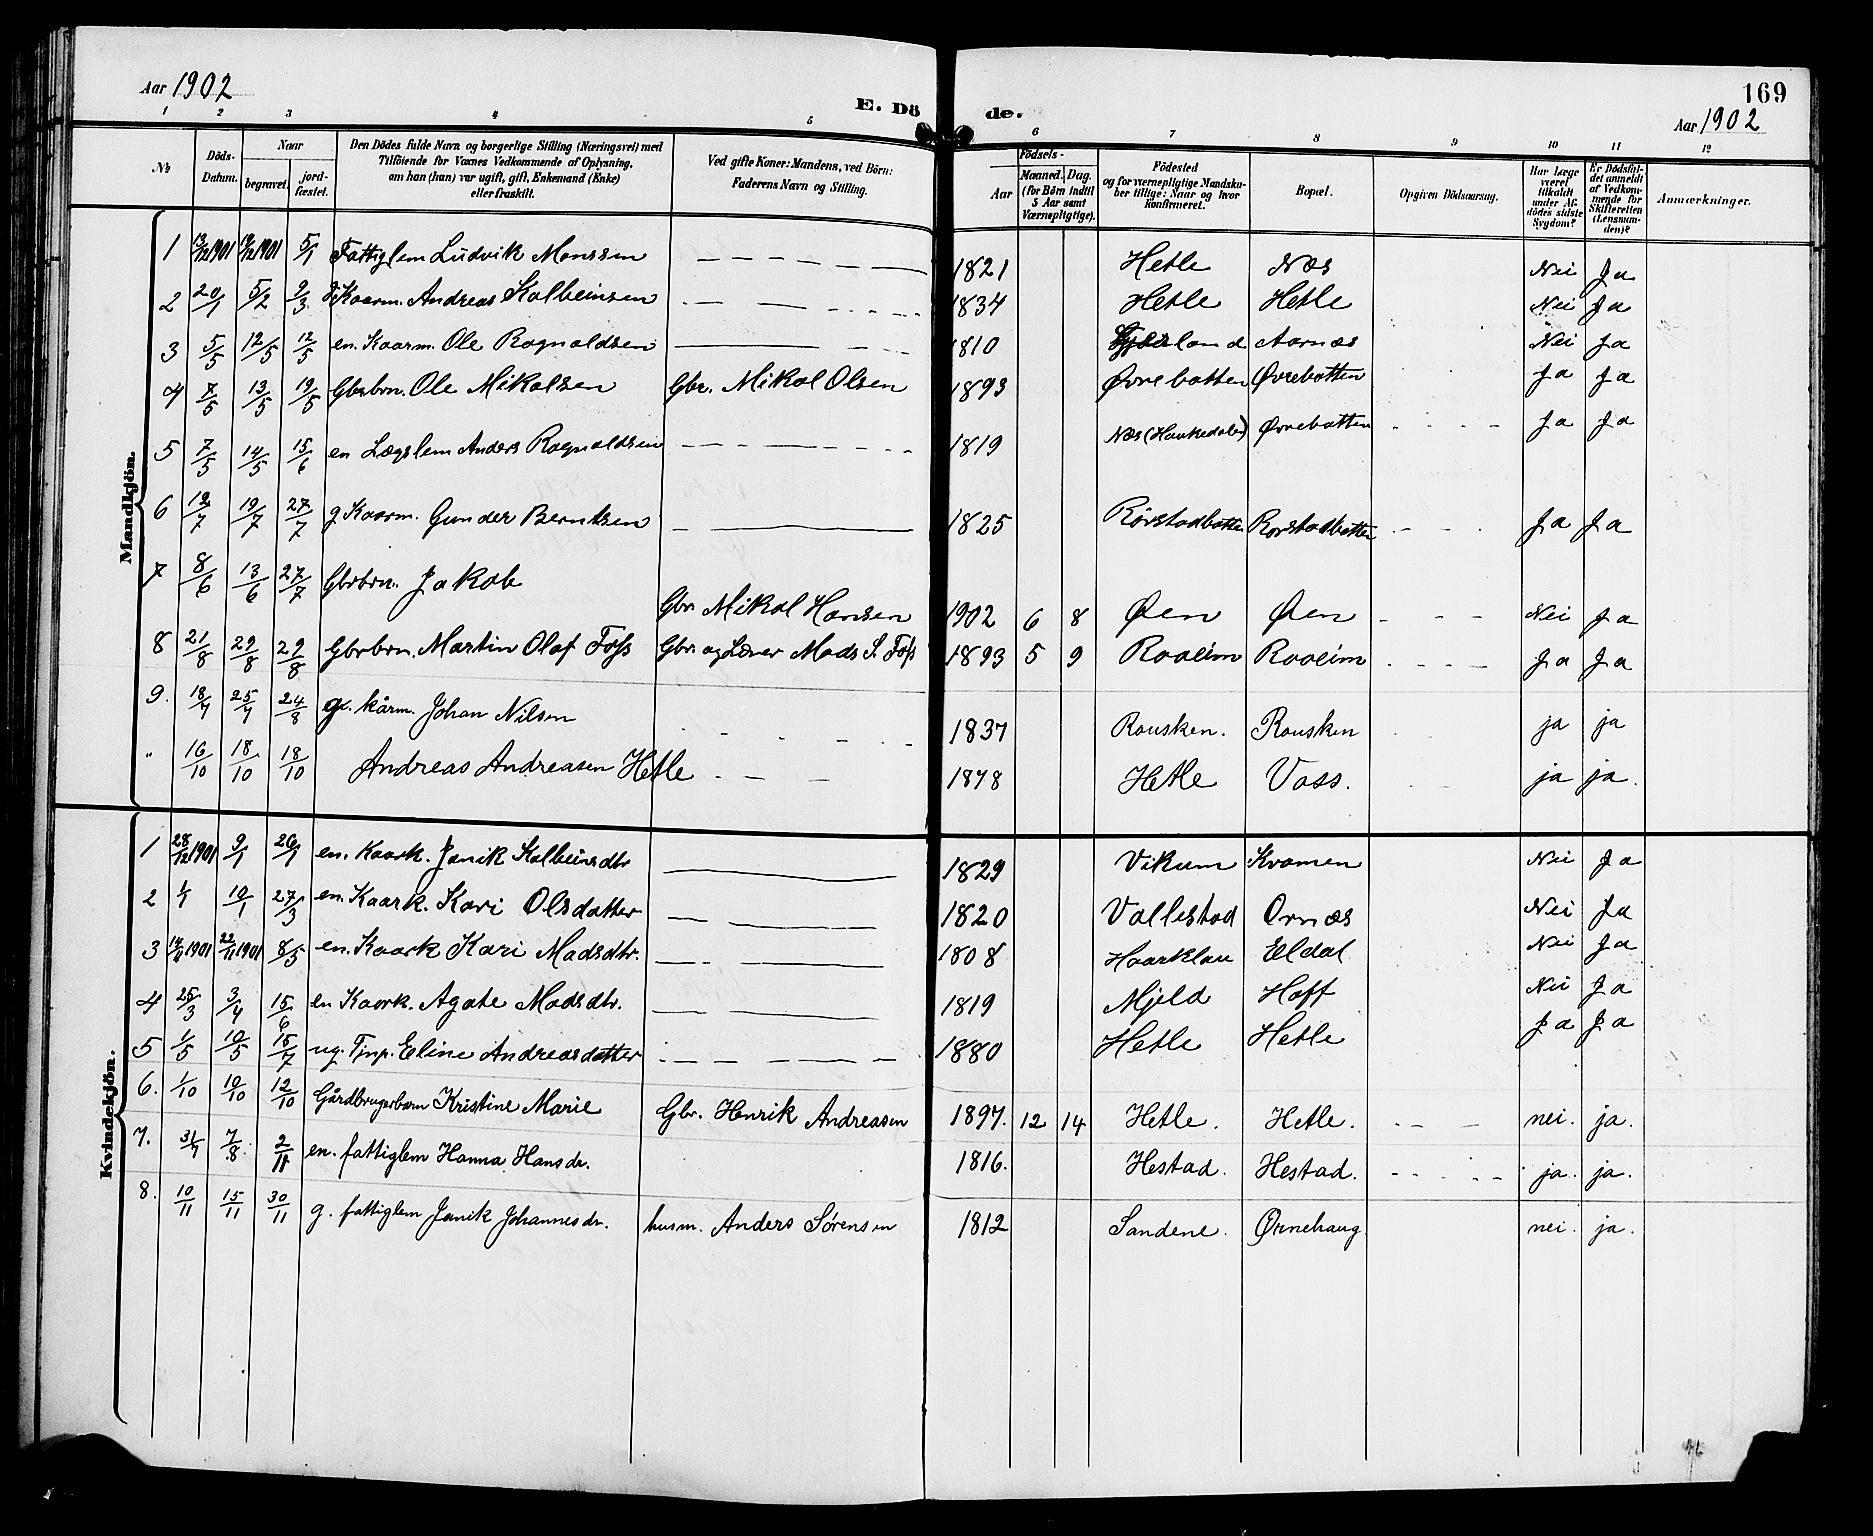 Aar 1902
E. Dö
de.
169
Aar 1902
1 2 3 4 5 6 7 8 9 10 11 12
№
Döds-Datum.
Naar
begravet.
jord-fæstet.
Den Dödes fulde Navn og borgerlige Stilling (Næringsvei) med
Tilföiende for Voxnes Vedkommende af Oplysning,
om han (hun) var ugift, gift, Enkemand (Enke)
eller fraskilt.
Ved gifte Koner: Mandens, ved Börn:
Faderens Navn og Stilling.
Födsels-
Aar
Maaned. Dag.
(for Börn indtil
5 Aar samt
Værnepligtige).
Födested
og for værnepligtige Mandska-
ber tillige: Naar og hvor
konfirmeret.
Bopæl.
Opgiven Dödsaarsag.
Har Læge
været
tilkaldt
under Af-
dödes sidste
Sygdom?
Er Dödsfal-
det anmeldt
af Vedkom-
mende for
Skifteretten
(Lensman-
den)?
Anmærkninger.
Mandkjön.
1 13/12 1901 19/12 1901 5/1 Fattiglem Ludvik Monssen 1821 Hetle Nes Nei Ja
2 20/1 5/2 9/3 Kaarm. Andreas Kolbeinsen 1834 Hetle Hetle Nei Ja
3 5/5 12/5 12/5 en. Kaarm. Ole Ragnoldsen 1810 Aarnæs Nei Ja
4 7/5 13/5 19/5 Gbrbrn. Ole Mikalsen Gbr. Mikal Olsen 1893 Øvrebotten Øvrebotten Ja Ja
5 7/5 14/5 15/6 en Lægslem Anders Ragnoldsen 1819 Næs (Haukedalen) Øvrebotten Ja Ja
6 12/7 19/7 27/7 g Kaarm. Gunder Berntsen 1825 Rörstadbotten Rorstadbotten Ja Ja
7 8/6 13/6 27/7 Gbrbrn. Jakob Gbr. Mikal Hansen 1902 6 8 Øen Øen Nei Ja
8 21/8 29/8 29/8 Gbrbrn. Martin Olaf Foss Gbr. og Lærer Mads S. Foss 1893 5 9 Raaeim Raaeim Ja Ja
9. 18/7 25/7 24/8 g. kårm. Johan Nilsen 1837 Rousken. Rousken ja ja
" 16/10 18/10 18/10 Andreas Andreasen Hetle 1878 Hetle Voss. ja ja.
Kvindekjön.
1 28/12 1901 9/1 26/1 en. Kaark. Janik Kolbeinsdtr 1829 Vikum Kvamen Nei Ja
2 1/1 10/1 27/3 en. Kaark. Kari Olsdatter 1820 Vallestad Ornæs Nei Ja
3 14/11 1901 22/11 1901 8/5 en. Kaark Kari Madsdtr. 1808 Haarklau Eldal Nei Ja
4 25/3 3/4 15/6 en Kaark. Agate Madsdtr. 1819 Mjeld Hoff Nei Ja
5 1/5 10/5 15/7 ug. Tjnp. Eline Andreasdatter 1880 Hetle Hetle Ja Ja
6. 1/10 10/10 12/10 Gårdbrugerbarn Kristine Marie Gbr. Henrik Andreasen 1897. 12 14 Hetle. Hetle. nei. ja.
7. 31/7 7/8 2/11 en. fattiglem Hanna Hansdr. 1816. Hestad. Hestad. ja. ja.
8. 10/11 15/11 30/11 g. fattiglem Janik Johannesdr. husm. Anders Sörensen 1812 Sandene. Ørnehaug nei. ja.